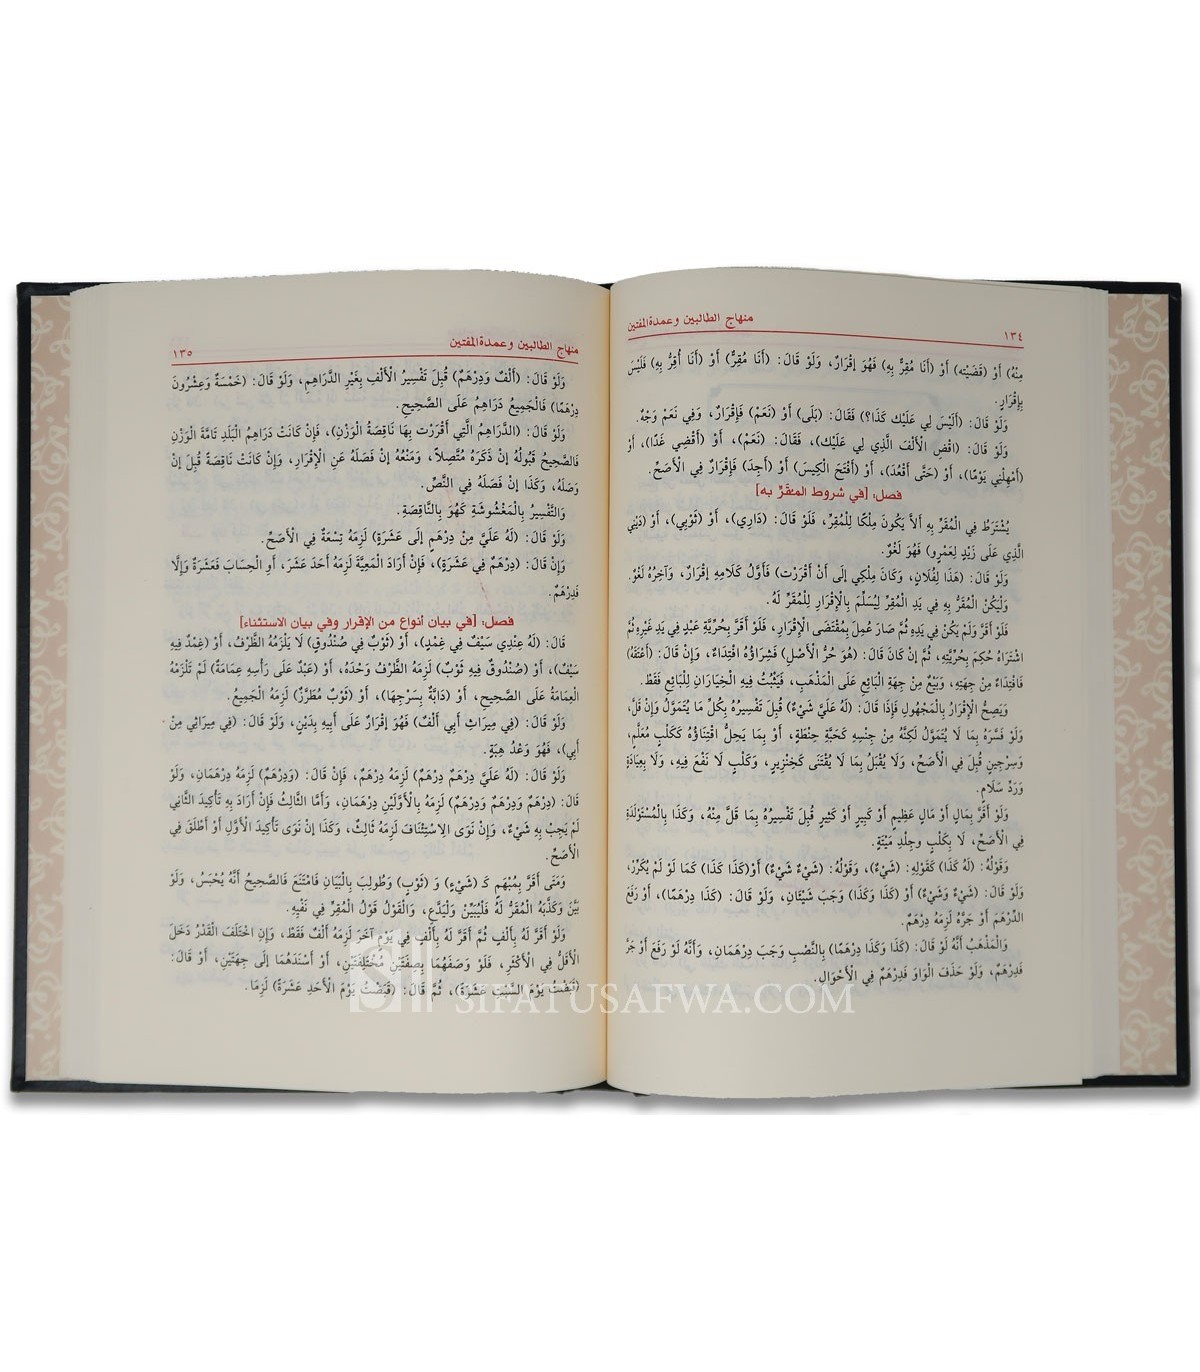 ١٣٤ منهاج الطالبين وعمدة المفتين
مِنْهُ) أَوْ (قَضَيْته) أَوْ (أَنَا مُقِرٌّ بِهِ) فَهُوَ إقْرَارٌ، وَلَوْ قَالَ: (أَنَا مُقِرٌّ) أَوْ (أَنَا أُقِرُّ بِهِ) فَلَيْسَ
بِإِقْرَارٍ.
وَلَوْ قَالَ: (أَلَيْسَ لِي عَلَيْك كَذَا؟) فَقَالَ: (بَلَى) أَوْ (نَعَمْ) فَإِقْرَارٌ، وَفِي نَعَمْ وَجْهٌ.
وَلَوْ قَالَ: (اقْضِ الْأَلْفَ الَّذِي لِي عَلَيْك)، فَقَالَ: (نَعَمْ)، أَوْ (أَقْضِي غَدًا)، أَوْ
(أَمْهِلْنِي يَوْمًا)، أَوْ (حَتَّى أَقْعُدَ)، أَوْ (أَفْتَحَ الْكِيسَ) أَوْ (أَجِدَ) فَإِقْرَارٌ فِي الْأَصَحِّ.
فصل: [في شروط المُقَرِّ به]
يُشْتَرَطُ فِي الْمُقَرِّ بِهِ أَلاَّ يَكُونَ مِلْكًا لِلْمُقِرِّ، فَلَوْ قَالَ: (دَارِي)، أَوْ (ثَوْبِي)، أَوْ (دَيْنِي
الَّذِي عَلَى زَيْدٍ لِعَمْرٍو) فَهُوَ لَغْوٌ.
وَلَوْ قَالَ: (هَذَا لِفُلَانٍ، وَكَانَ مِلْكِي إلَى أَنْ أَقْرَرْت) فَأَوَّلُ كَلَامِهِ إقْرَارٌ، وَآخِرُهُ لَغْوٌ.
وَلْيَكُنْ الْمُقَرُّ بِهِ فِي يَدِ الْمُقِرِّ لِيُسَلِّمَ بِالْإِقْرَارِ لِلْمُقَرِّ لَهُ.
فَلَوْ أَقَرَّ وَلَمْ يَكُنْ فِي يَدِهِ ثُمَّ صَارَ عُمِلَ بِمُقْتَضَى الْإِقْرَارِ، فَلَوْ أَقَرَّ بِحُرِّيَّةِ عَبْدٍ فِي يَدِ غَيْرِهِ ثُمَّ
اشْتَرَاهُ حُكِمَ بِحُرِّيَّتِهِ، ثُمَّ إنْ كَانَ قَالَ: (هُوَ حُرُّ الْأَصْلِ) فَشِرَاؤُهُ افْتِدَاءٌ، وَإِنْ قَالَ: (أَعْتَقَهُ)
فَافْتِدَاءٌ مِنْ جِهَتِهِ، وَبَيْعٌ مِنْ جِهَةِ الْبَائِعِ عَلَى الْمَذْهَبِ، فَيَثْبُتُ فِيهِ الْخِيَارَانِ لِلْبَائِعِ فَقَطْ.
وَيَصِحُّ الْإِقْرَارُ بِالْمَجْهُولِ فَإِذَا قَالَ: (لَهُ عَلَيَّ شَيْءٌ) قُبِلَ تَفْسِيرُهُ بِكُلِّ مَا يُتَمَوَّلُ وَإِنْ قَلَّ،
وَلَوْ فَسَّرَهُ بِمَا لَا يُتَمَوَّلُ لَكِنَّهُ مِنْ جِنْسِهِ كَحَبَّةِ حِنْطَةٍ، أَوْ بِمَا يَحِلُّ اقْتِنَاؤُهُ كَكَلْبٍ مُعَلَّمٍ،
وَسِرْجِينٍ قُبِلَ فِي الْأَصَحِّ، وَلَا يُقْبَلُ بِمَا لَا يُقْتَنَى كَخِنْزِيرٍ، وَكَلْبٍ لَا نَفْعَ فِيهِ، وَلَا بِعِيَادَةٍ
وَرَدِّ سَلَامٍ.
وَلَوْ أَقَرَّ بِمَالٍ أَوْ مَالٍ عَظِيمٍ أَوْ كَبِيرٍ أَوْ كَثِيرٍ قُبِلَ تَفْسِيرُهُ بِمَا قَلَّ مِنْهُ، وَكَذَا بِالْمُسْتَوْلَدَةِ
فِي الْأَصَحِّ، لَا بِكَلْبٍ وَجِلْدِ مَيْتَةٍ.
وَقَوْلُهُ: (لَهُ كَذَا) كَقَوْلِهِ: (شَيْءٌ)، وَقَوْلُهُ: (شَيْءٌ شَيْءٌ) أَوْ(كَذَا كَذَا) كَمَا لَوْ لَمْ يُكَرِّرْ،
وَلَوْ قَالَ: (شَيْءٌ وَشَيْءٌ) أَوْ (كَذَا وَكَذَا) وَجَبَ شَيْئَانِ، وَلَوْ قَالَ: (كَذَا دِرْهَمًا)، أَوْ رَفَعَ
الدِّرْهَمَ أَوْ جَرَّهُ لَزِمَهُ دِرْهَمٌ.
وَالْمَذْهَبُ أَنَّهُ لَوْ قَالَ: (كَذَا وَكَذَا دِرْهَمًا) بِالنَّصْبِ وَجَبَ دِرْهَمَانِ، وَأَنَّهُ لَوْ رَفَعَ أَوْ جَرَّ
فَدِرْهَمٌ، وَلَوْ حَذَفَ الْوَاوَ فَدِرْهَمٌ فِي الْأَحْوَالِ.
منهاج الطالبين وعمدة المفتين ١٣٥
وَلَوْ قَالَ: (أَلْفٌ وَدِرْهَمٌ) قُبِلَ تَفْسِيرُ الْأَلْفِ بِغَيْرِ الدَّرَاهِمِ، وَلَوْ قَالَ: (خَمْسَةٌ وَعِشْرُونَ
دِرْهَمًا) فَالْجَمِيعُ دَرَاهِمُ عَلَى الصَّحِيحِ.
وَلَوْ قَالَ: (الدَّرَاهِمُ الَّتِي أَقْرَرْت بِهَا نَاقِصَةُ الْوَزْنِ)، فَإِنْ كَانَتْ دَرَاهِمُ الْبَلَدِ تَامَّةَ الْوَزْنِ
فَالصَّحِيحُ قَبُولُهُ إنْ ذَكَرَهُ مُتَّصِلاً، وَمَنْعُهُ إنْ فَصَلَهُ عَنِ الْإِقْرَارِ، وَإِنْ كَانَتْ نَاقِصَةً قُبِلَ إنْ
وَصَلَهُ، وَكَذَا إنْ فَصَلَهُ فِي النَّصِّ.
وَالتَّفْسِيرُ بِالْمَغْشُوشَةِ كَهُوَ بِالنَّاقِصَةِ.
وَلَوْ قَالَ: (لَهُ عَلَيَّ مِنْ دِرْهَمٍ إلَى عَشَرَةٍ) لَزِمَهُ تِسْعَةٌ فِي الْأَصَحِّ.
وَإِنْ قَالَ: (دِرْهَمٌ فِي عَشَرَةٍ)، فَإِنْ أَرَادَ الْمَعِيَّةَ لَزِمَهُ أَحَدَ عَشَرَ، أَوِ الْحِسَابَ فَعَشَرَةٌ وَإِلَّا
فَدِرْهَمٌ.
فصل: [في بيان أنواع من الإقرار وفي بيان الاستثناء]
قَالَ: (لَهُ عِنْدِي سَيْفٌ فِي غِمْدٍ)، أَوْ (ثَوْبٌ فِي صُنْدُوقٍ) لَا يَلْزَمُهُ الظَّرْفُ، أَوْ (غِمْدٌ فِيهِ
سَيْفٌ)، أَوْ (صُنْدُوقٌ فِيهِ ثَوْبٌ) لَزِمَهُ الظَّرْفُ وَحْدَهُ، أَوْ (عَبْدٌ عَلَى رَأْسِهِ عِمَامَةٌ) لَمْ تَلْزَمْهُ
الْعِمَامَةُ عَلَى الصَّحِيحِ، أَوْ (دَابَّةٌ بِسَرْجِهَا)، أَوْ (ثَوْبٌ مُطَرَّزٌ) لَزِمَهُ الْجَمِيعُ.
وَلَوْ قَالَ: (فِي مِيرَاثِ أَبِي أَلْفٌ) فَهُوَ إقْرَارٌ عَلَى أَبِيهِ بِدَيْنٍ، وَلَوْ قَالَ: (فِي مِيرَاثِي مِنْ
أَبِي)، فَهُوَ وَعْدُ هِبَةٍ.
وَلَوْ قَالَ: (لَهُ عَلَيَّ دِرْهَمٌ دِرْهَمٌ) لَزِمَهُ دِرْهَمٌ، فَإِنْ قَالَ: (وَدِرْهَمٌ) لَزِمَهُ دِرْهَمَانِ، وَلَوْ
قَالَ: (دِرْهَمٌ وَدِرْهَمٌ وَدِرْهَمٌ) لَزِمَهُ بِالْأَوَّلَيْنِ دِرْهَمَانِ، وَأَمَّا الثَّالِثُ فَإِنْ أَرَادَ بِهِ تَأْكِيدَ الثَّانِي
لَمْ يَجِبْ بِهِ شَيْءٌ، وَإِنْ نَوَى الِاسْتِئْنَافَ لَزِمَهُ ثَالِثٌ، وَكَذَا إنْ نَوَى تَأْكِيدَ الْأَوَّلِ أَوْ أَطْلَقَ فِي
الْأَصَحِّ.
وَمَتَى أَقَرَّ بِمُبْهَمٍ كَـ (شَيْءٍ) وَ (ثَوْبٍ) وَطُولِبَ بِالْبَيَانِ فَامْتَنَعَ فَالصَّحِيحُ أَنَّهُ يُحْبَسُ، وَلَوْ
بَيَّنَ وَكَذَّبَهُ الْمُقَرُّ لَهُ فَلْيُبَيِّنْ وَلْيَدَّعِ، وَالْقَوْلُ قَوْلُ الْمُقِرِّ فِي نَفْيِهِ.
وَلَوْ أَقَرَّ لَهُ بِأَلْفٍ ثُمَّ أَقَرَّ لَهُ بِأَلْفٍ فِي يَوْمٍ آخَرَ لَزِمَهُ أَلْفٌ فَقَطْ، وَإِنِ اخْتَلَفَ الْقَدْرُ دَخَلَ
الْأَقَلُّ فِي الْأَكْثَرِ، فَلَوْ وَصَفَهُمَا بِصِفَتَيْنِ مُخْتَلِفَتَيْنِ، أَوْ أَسْنَدَهُمَا إلَى جِهَتَيْنِ، أَوْ قَالَ:
(قَبَضْتُ يَوْمَ السَّبْتِ عَشَرَةً)، ثُمَّ قَالَ: (قَبَضْتُ يَوْمَ الْأَحَدِ عَشَرَةً) لَزِمَا.
SIFATUSAFWA.COM